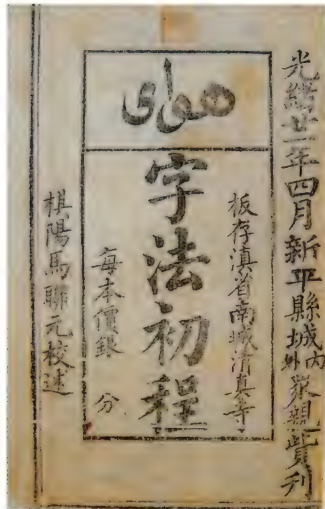 光緒廿一年四月新平縣城內外眾親貲刊
هواى
板存滇省南城清真寺
字法初程
每本價銀 分
棋陽馬聯元校述